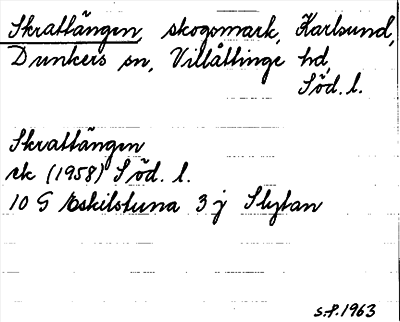 Skrattängen, skogsmark, Karlsund,
Dunkers sn, Villåttinge hd,
Söd. l.
Skrattängen
rk (1958) Söd. l.
10 G Eskilstuna 3 j Slytan
S.P. 1963